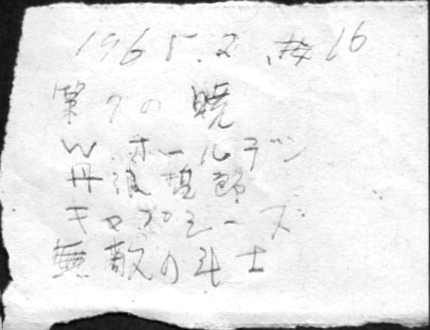 1965.2. 16
第7の暁
W.ホールデン
丹波哲郎
キャプシーヌ
無敵の斗士